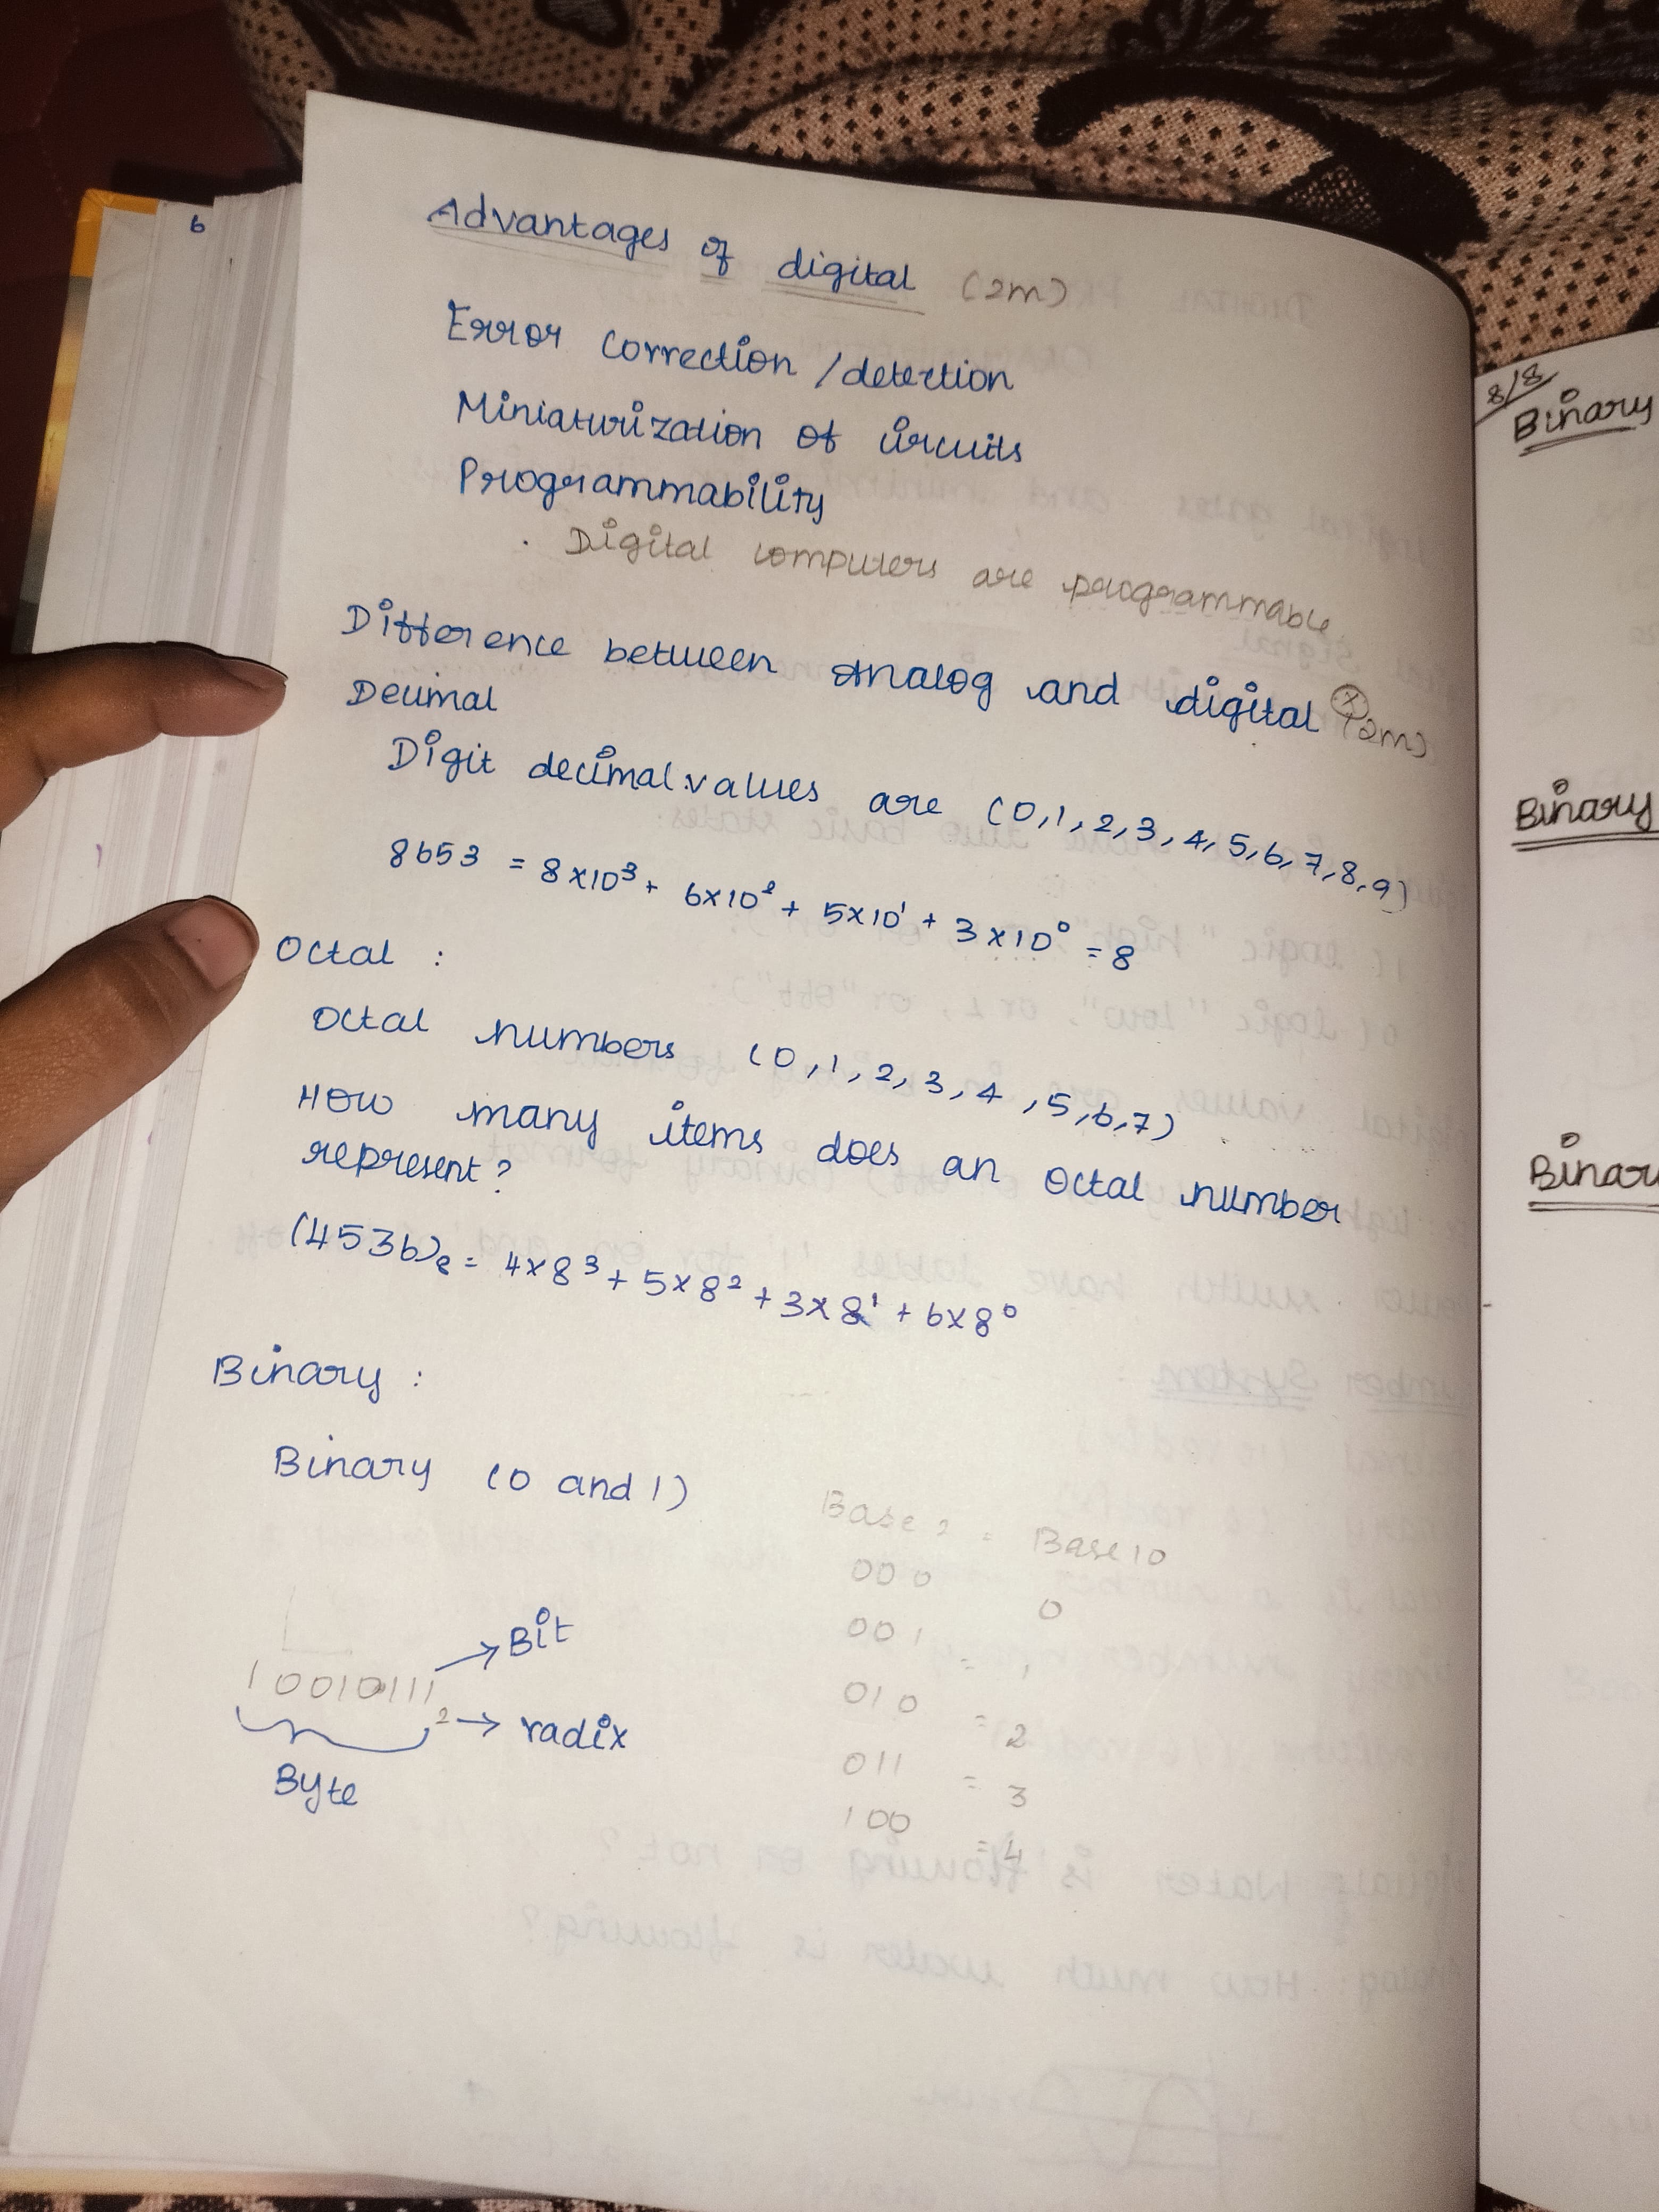 6
Advantages of digital (2m)
Error correction / detection
Miniaturization of circuits
Programmability
. Digital computers are programmable
Difference between Analog and digital (x) (2m)
Decimal
Digit decimal values are (0,1,2,3,4,5,6,7,8,9)
8653 = 8×10³ + 6×10² + 5×10¹ + 3×10⁰ = 8
Octal :
Octal numbers (0,1,2,3,4,5,6,7)
How many items does an octal number
represent?
(4536)₈ = 4×8³ + 5×8² + 3×8¹ + 6×8⁰
Binary :
Binary (0 and 1)
Base 2 = Base 10
000 0
001 = 1
010 = 2
011 = 3
100 = 4
→ Bit
10010111₂ → radix
Byte
8/8
Binary
Binary
Binary